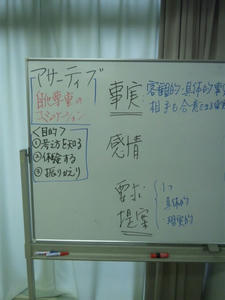 アサーティブ
自他尊重の
コミュニケーション
<目的>
①考え方を知る
②体験する
③振りかえり
事実
客観的・具体的
相手も合意できる
感情
要求
提案
1つ
具体的
現実的